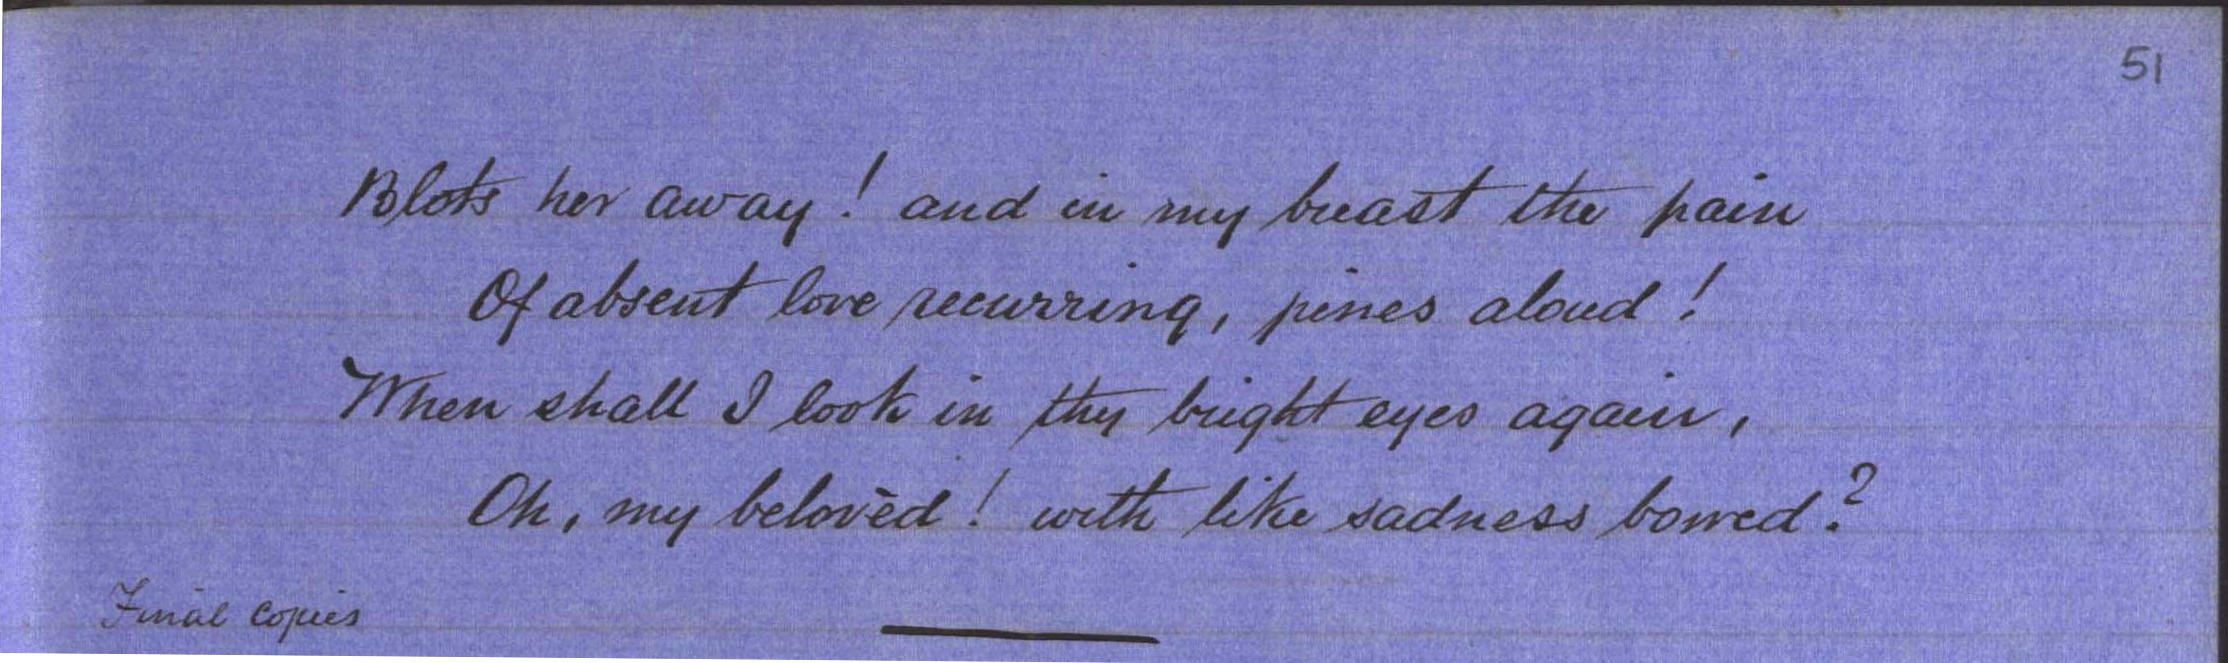 51
Blots her away! and in my breast the pain
Of absent love recurring, pines aloud!
When shall I look in thy bright eyes again,
Oh, my belovèd! with like sadness bowed?
Final copies